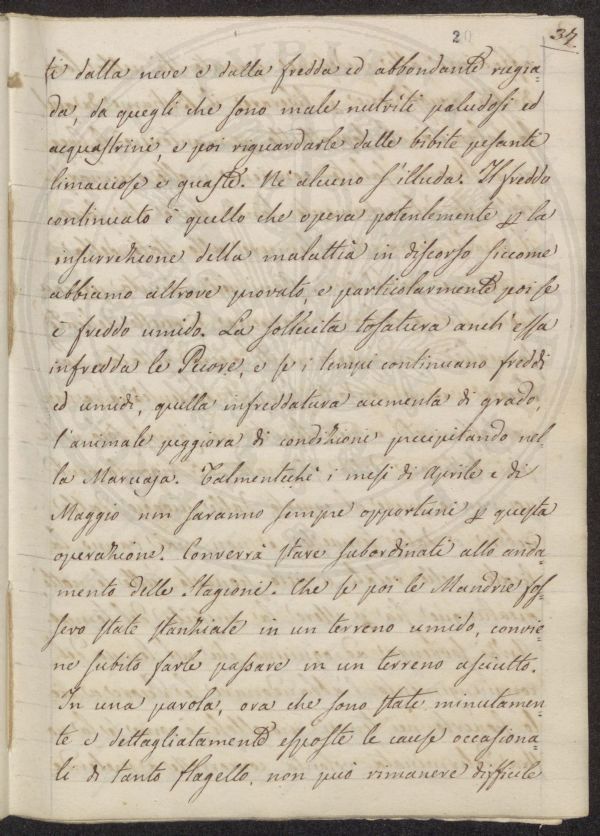 20 37.
ti dalla neve e dalla fredda ed abbondante rugia=
da, da quegli che sono male nutriti paludosi ed
acquastrini, e poi riguardarle dalle bibite pesante
limacciose e guaste. Nè alcuno s'illuda. Il freddo
continuato è quello che opera potentemente p la
insurrezione della malattia in discorso siccome
abbiamo altrove provato, e particolarmente poi se
è freddo umido. La sollecita tosatura anch'essa
infredda le Pecore, e se i tempi continuano freddi
ed umidi, quella infreddatura aumenta di grado,
l'animale peggiora di condizione precipitando nel=
la Marciaja. Talmentechè i mesi di Aprile e di
Maggio non saranno sempre opportuni p questa
operazione. Converrà stare subordinati allo anda=
mento delle Stagioni. Che se poi le Mandrie fos=
sero state stanziate in un terreno umido, convie=
ne subito farle passare in un terreno asciutto.
In una parola, ora che sono state minutamen=
te e dettagliatamente esposte le cause occasiona=
li di tanto flagello, non può rimanere difficile